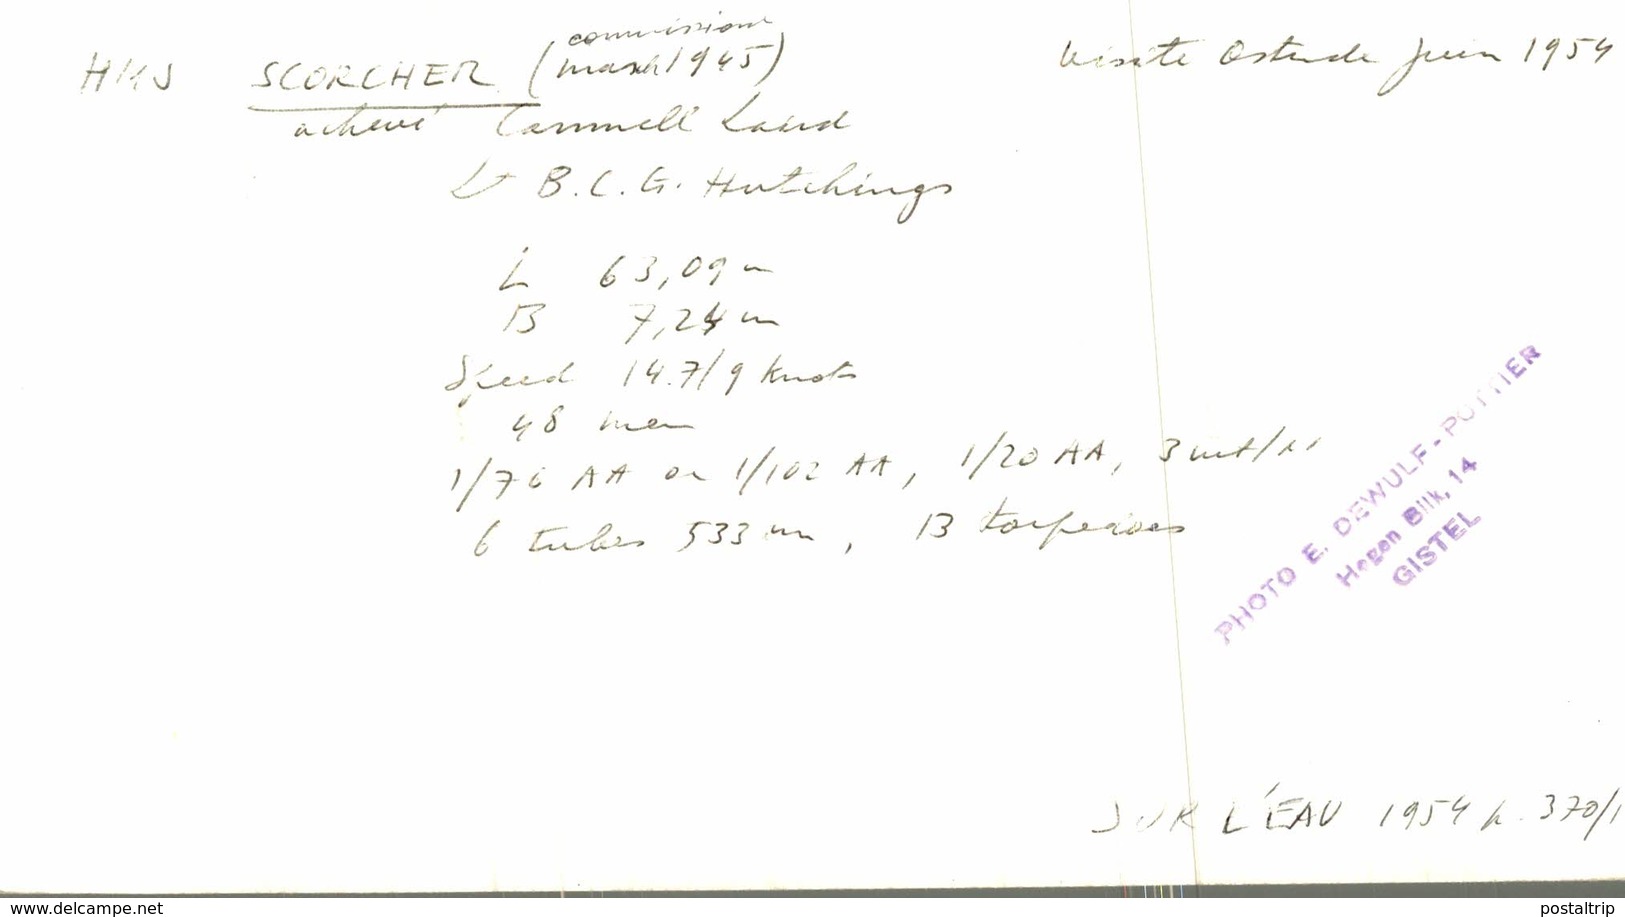 commission
HMS SCORCHER (march 1945) Visite Ostende Juin 1954
achevé Cammell Laird
Lt B.C.G. Hutchings
L 63,09 m
B 7,24 m
Speed 14.7/9 knots
48 men
1/76 AA or 1/102 AA, 1/20 AA, 3
6 tubes 533 mm, 13 torpedoes
PHOTO E. DEWULF-POTTIER
Hogen Bilk, 14
GISTEL
SUR L'ÉAU 1954 p. 370/1
www.delcampe.net
postaltrip